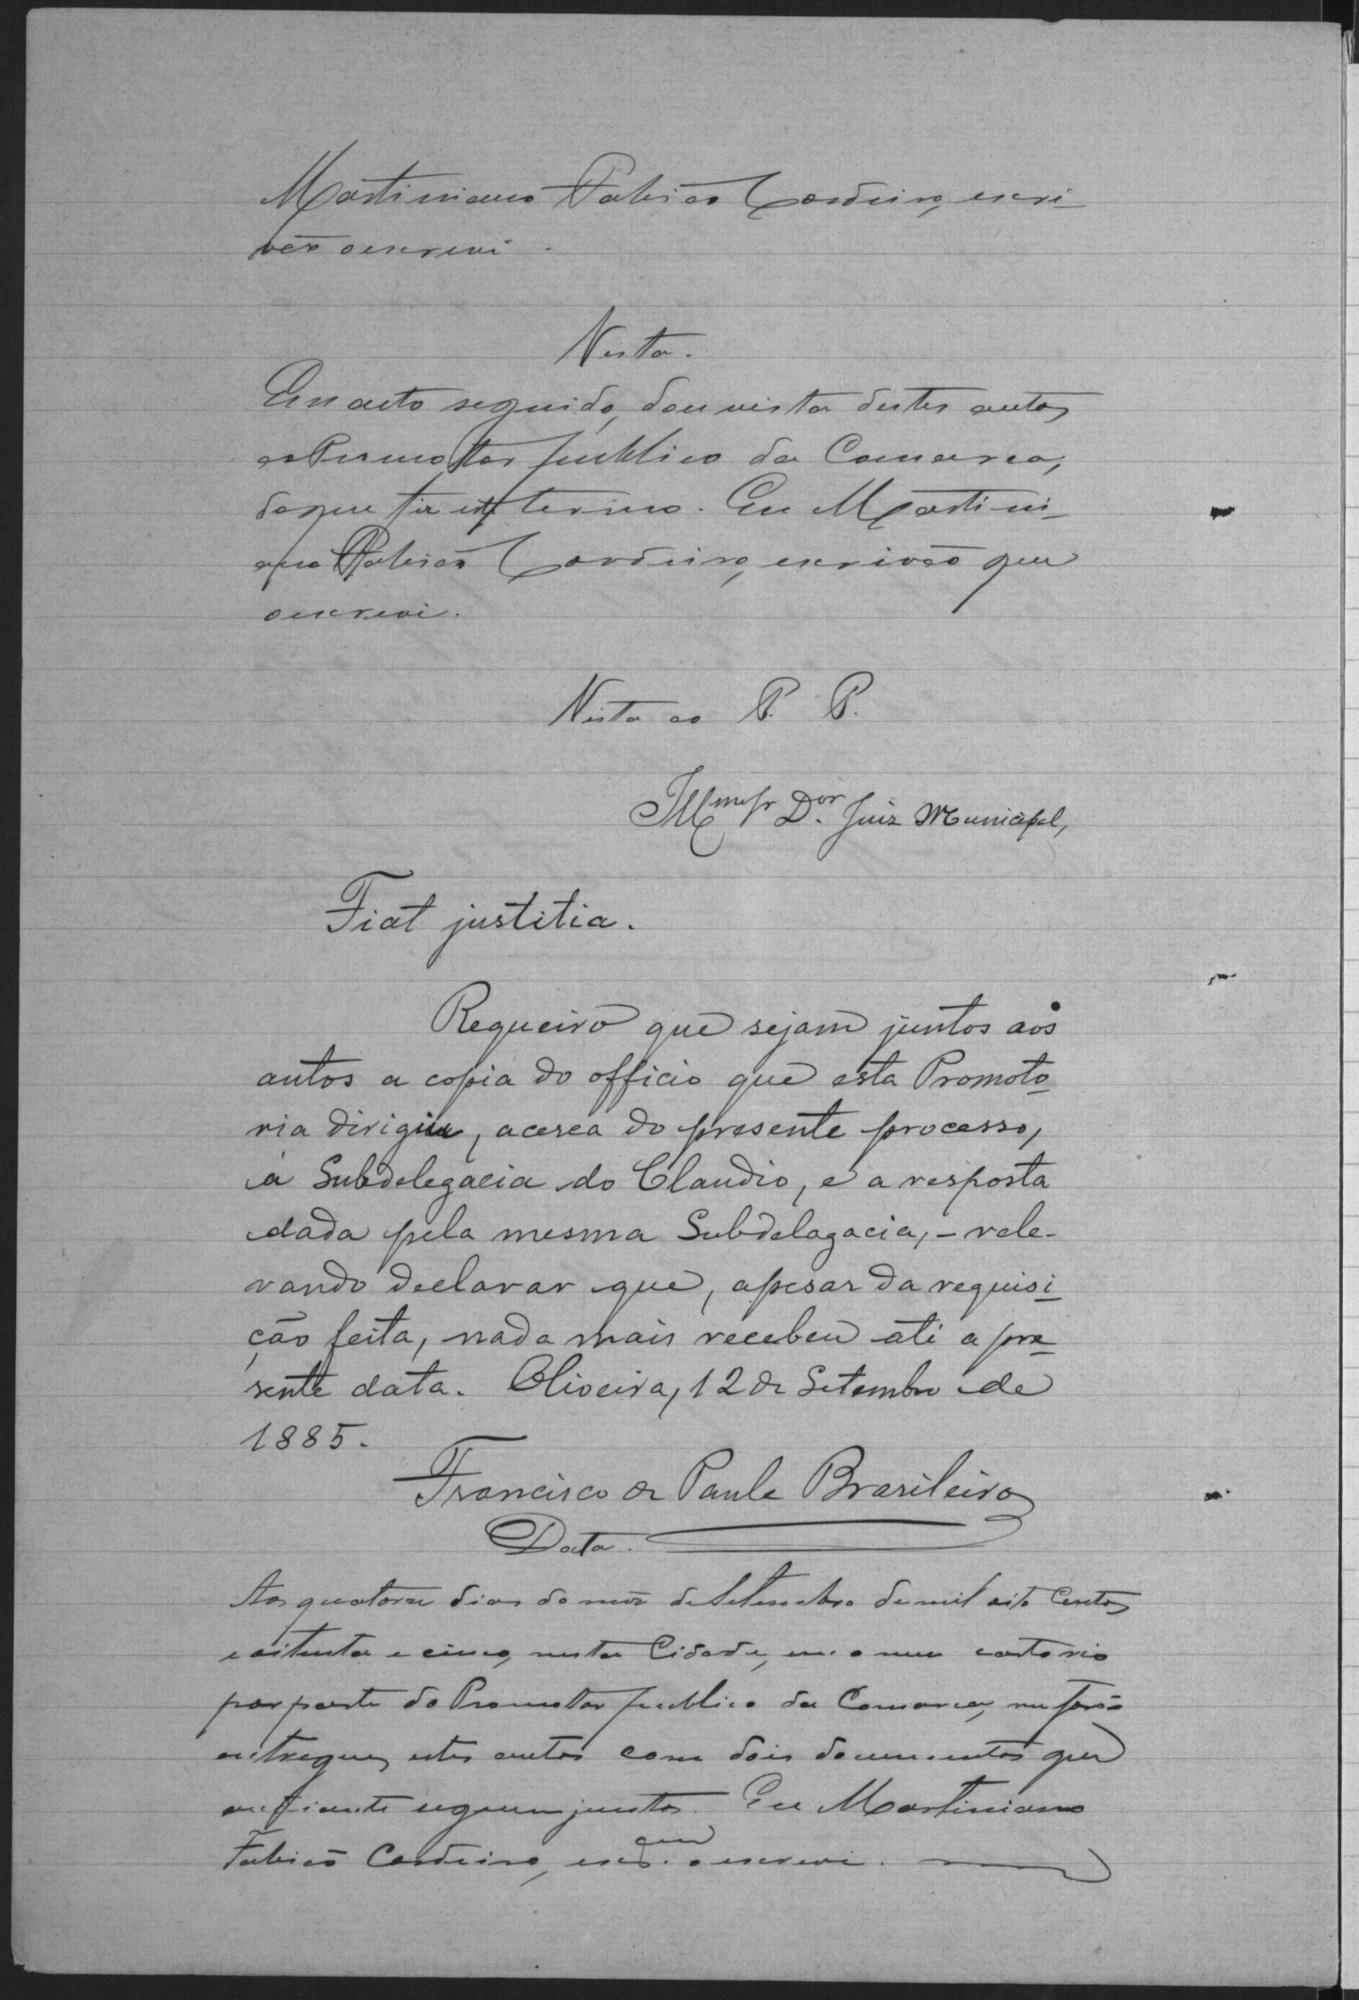 Martiniano Fabião Cordeiro, escri-
vão o escrevi.
Vista.
Em acto seguido, dou vista destes autos
ao Promotor publico da Comarca,
do que fiz este termo. Eu Martini-
ano Fabião Cordeiro, escrivão que
o escrevi.
Vista ao P. P.
Illmo Sr Dor. Juiz Municipal,
Fiat justitia.
Requeiro que sejam juntos aos
autos a copia do officio que esta Promoto-
ria dirigiu, acerca do presente processo,
á Subdelegacia do Claudio, e a resposta
dada pela mesma Subdelagacia, - rele-
vando declarar que, apesar da requisi-
ção feita, nada mais recebeu até a pre-
sente data. Oliveira, 12 de Setembro de
1885.
Francisco de Paula Brasileiro
Data.
Aos quatorze dias do mez de Setembro de mil oito centos
e oitenta e cinco, nesta Cidade, em o meu cartorio
por parte do Promotor publico da Comarca, me forão
entregues estes autos com dois documentos que
ao diante seguem juntos. Eu Martiniano
Fabião Cordeiro, esc.m que o escrevi.